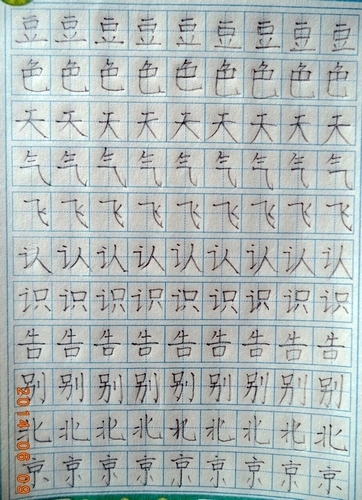 豆豆豆豆豆豆豆豆豆
色色色色色色色色色
天天天天天天天天天
气气气气气气气气气
飞飞飞飞飞飞飞飞飞
认认认认认认认认认
识识识识识识识识识
告告告告告告告告告
别别别别别别别别别
北北北北北北北北北
京京京京京京京京京
2014.06.09